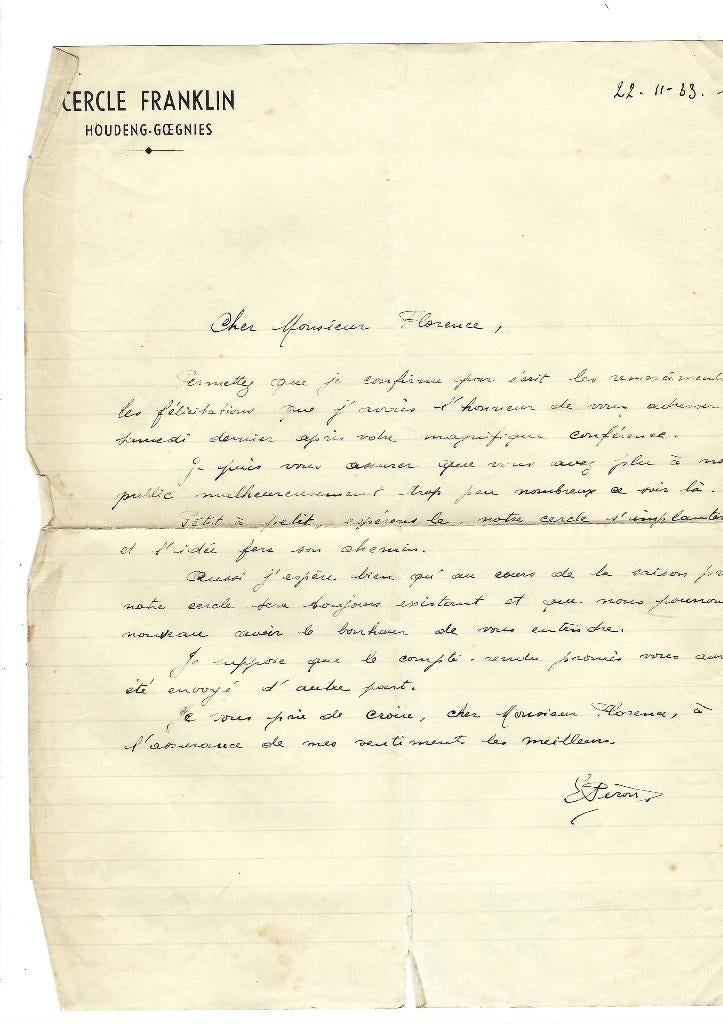 CERCLE FRANKLIN
HOUDENG-GŒGNIES
22-11-53.
Cher Monsieur Florence,
Permettez que je confirme par écrit les remerciements
les félicitations que j'avais l'honneur de vous adresser
samedi dernier après votre magnifique conférence.
Je puis vous assurer que vous avez plu à no
public malheureusement trop peu nombreux ce soir là.
Petit à petit, espérons le, notre cercle s'implanter
et l'idée fera son chemin.
Aussi j'espère bien qu'au cours de la saison pr
notre cercle sera toujours existant et que nous pourron
nouveau avoir le bonheur de vous entendre.
Je suppose que le compte-rendu promis vous au
été envoyé d'autre part.
Je vous prie de croire, cher Monsieur Florence, à
l'assurance de mes sentiments les meilleurs.